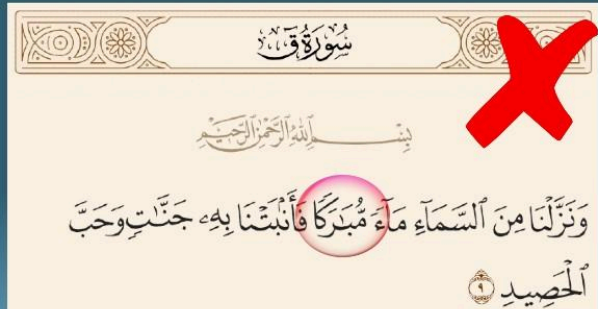 سُورَةُ قٓ
بِسْمِ ٱللَّهِ ٱلرَّحْمَٰنِ ٱلرَّحِيمِ
وَنَزَّلْنَا مِنَ ٱلسَّمَآءِ مَآءً مُّبَٰرَكًا فَأَنۢبَتْنَا بِهِۦ جَنَّٰتٍ وَحَبَّ
ٱلْحَصِيدِ ٩